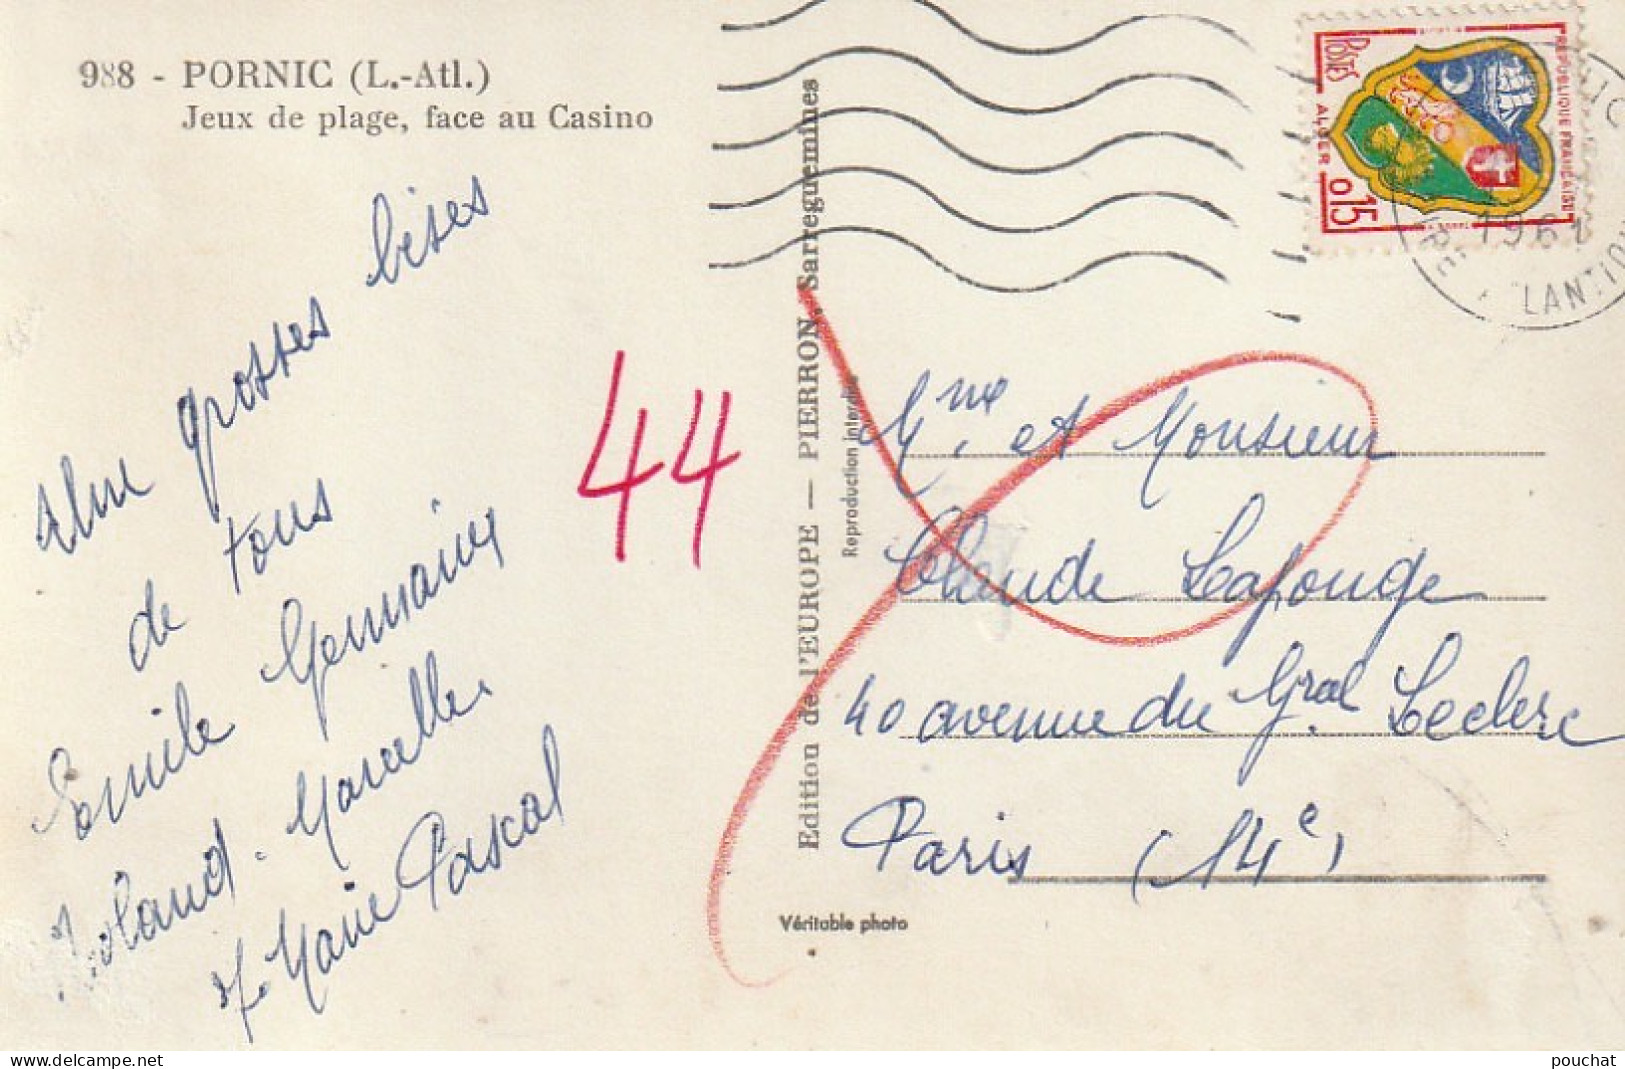 988 - PORNIC (L.-Atl.)
Jeux de plage, face au Casino
grosses bises
de tous
Emile Germaine
Roland. Marcelle.
J. Marie Pascal
44
Edition de l'EUROPE — PIERRON, Sarreguemines
Reproduction interdite
Véritable photo
POSTES
ALGER
REPUBLIQUE FRANÇAISE
0,15
196
LANTIQ
Mme et Monsieur
Claude Lafouge
40 avenue du Gral Leclerc
Paris (14e)
pouchat